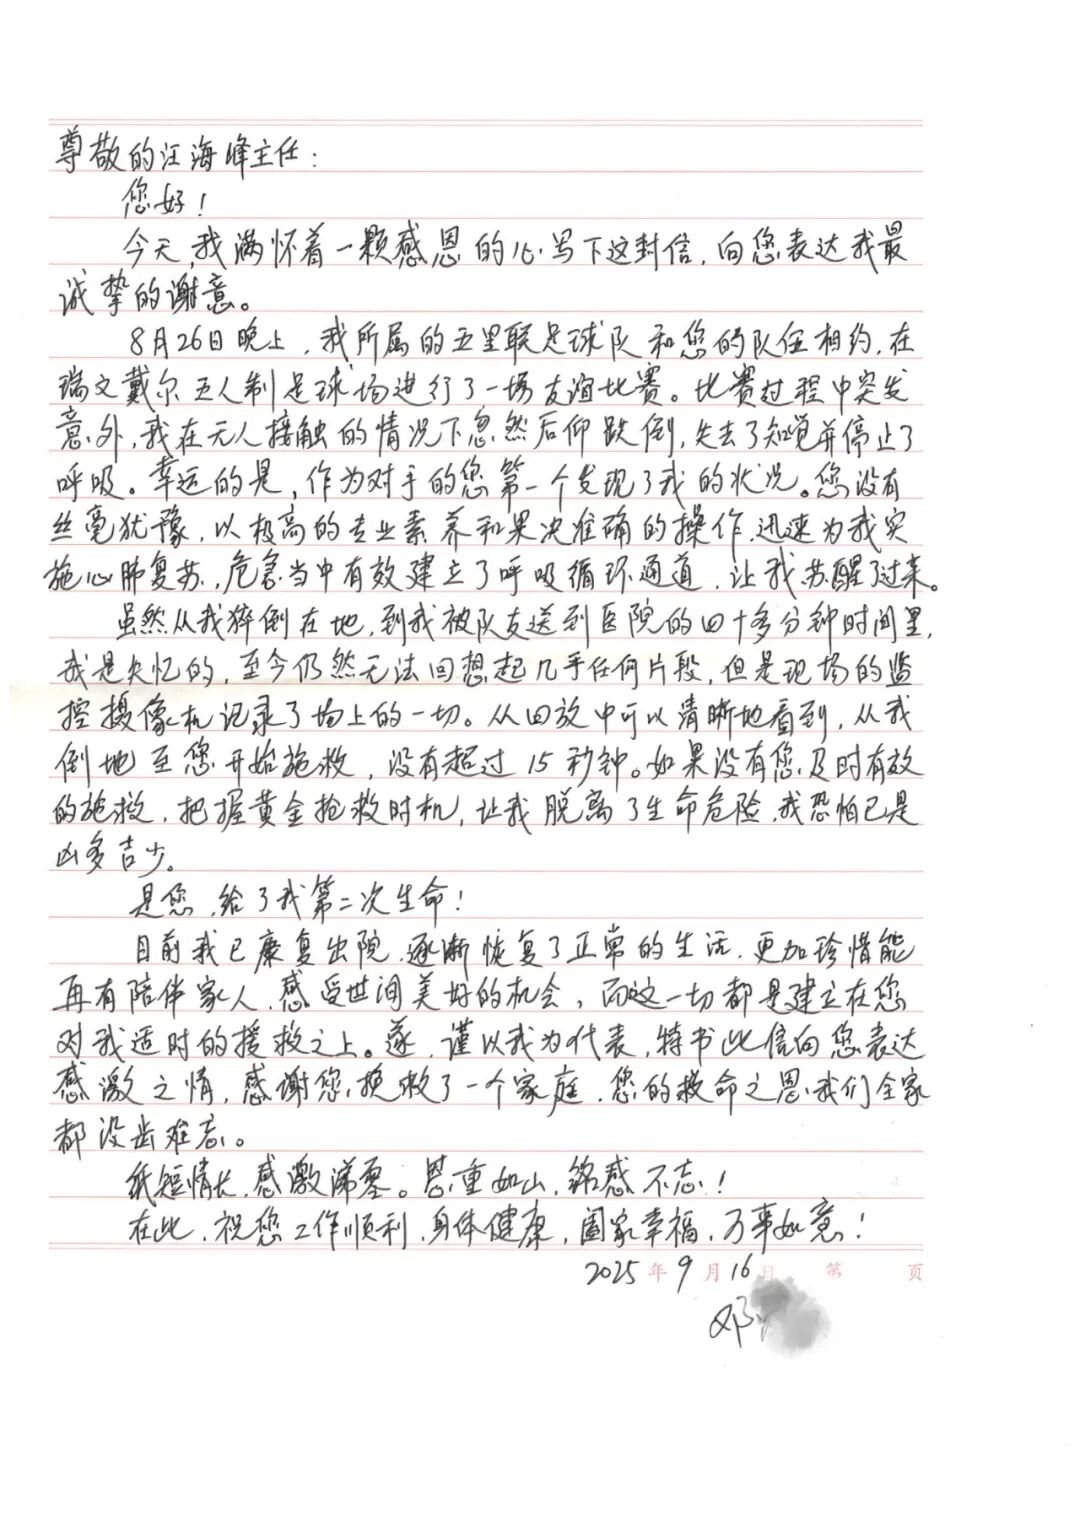 尊敬的汪海峰主任：
您好！
今天，我满怀着一颗感恩的心写下这封信，向您表达我最
诚挚的谢意。
8月26日晚上，我所属的五里联足球队和您的队伍相约，在
瑞文戴尔五人制足球场进行了一场友谊比赛。比赛过程中突发
意外，我在无人接触的情况下忽然后仰跌倒，失去了知觉并停止了
呼吸。幸运的是，作为对手的您第一个发现了我的状况。您没有
丝毫犹豫，以极高的专业素养和果决准确的操作，迅速为我实
施心肺复苏，危急当中有效建立了呼吸循环通道，让我苏醒了过来。
虽然从我猝倒在地，到我被队友送到医院的四十多分钟时间里，
我是失忆的，至今仍然无法回想起几乎任何片段，但是现场的监
控摄像机记录了场上的一切。从回放中可以清晰地看到，从我
倒地至您开始施救，没有超过15秒钟。如果没有您及时有效
的施救，把握黄金抢救时机，让我脱离了生命危险，我恐怕已是
凶多吉少。
是您，给了我第二次生命！
目前我已康复出院，逐渐恢复了正常的生活，更加珍惜能
再有陪伴家人，感受世间美好的机会，而这一切都是建立在您
对我适时的援救之上。遂，谨以我为代表，特书此信向您表达
感激之情，感谢您挽救了一个家庭，您的救命之恩我们全家
都没齿难忘。
纸短情长，感激涕零。恩重如山，铭感不忘！
在此，祝您工作顺利，身体健康，阖家幸福，万事如意！
2025年9月16日 第 页
邓